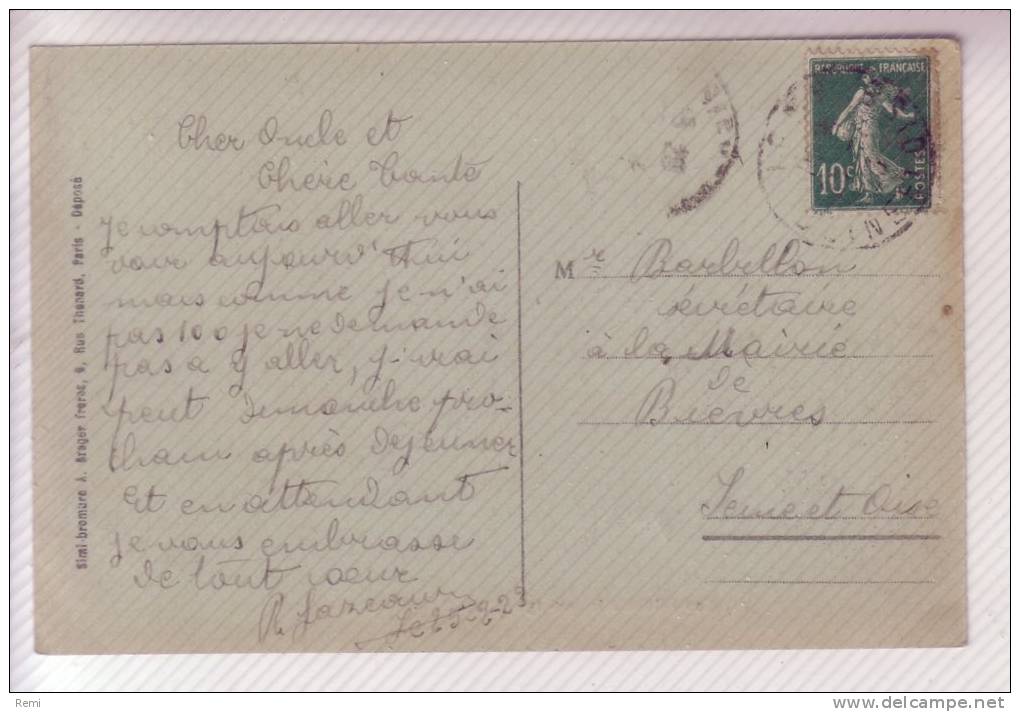 Simi-bromure A. Breger frères, 9, Rue Thénard, Paris - Déposé
Cher Oncle et
Chère Tante
Je comptais aller vous
voir aujourd'Hui
mais comme je n'ai
pas 100 je ne demande
pas a y aller, j'irai
peut Dimanche pro-
chain après dejeuner
Et en attendant
je vous embrasse
de tout cœur
R
le 25-2-23
REPUBLIQUE FRANÇAISE
10c
POSTES
Mr Barbillon
secrétaire
à la Mairie
de
Bièvres
Seine et Oise
Remi
delcampe.net